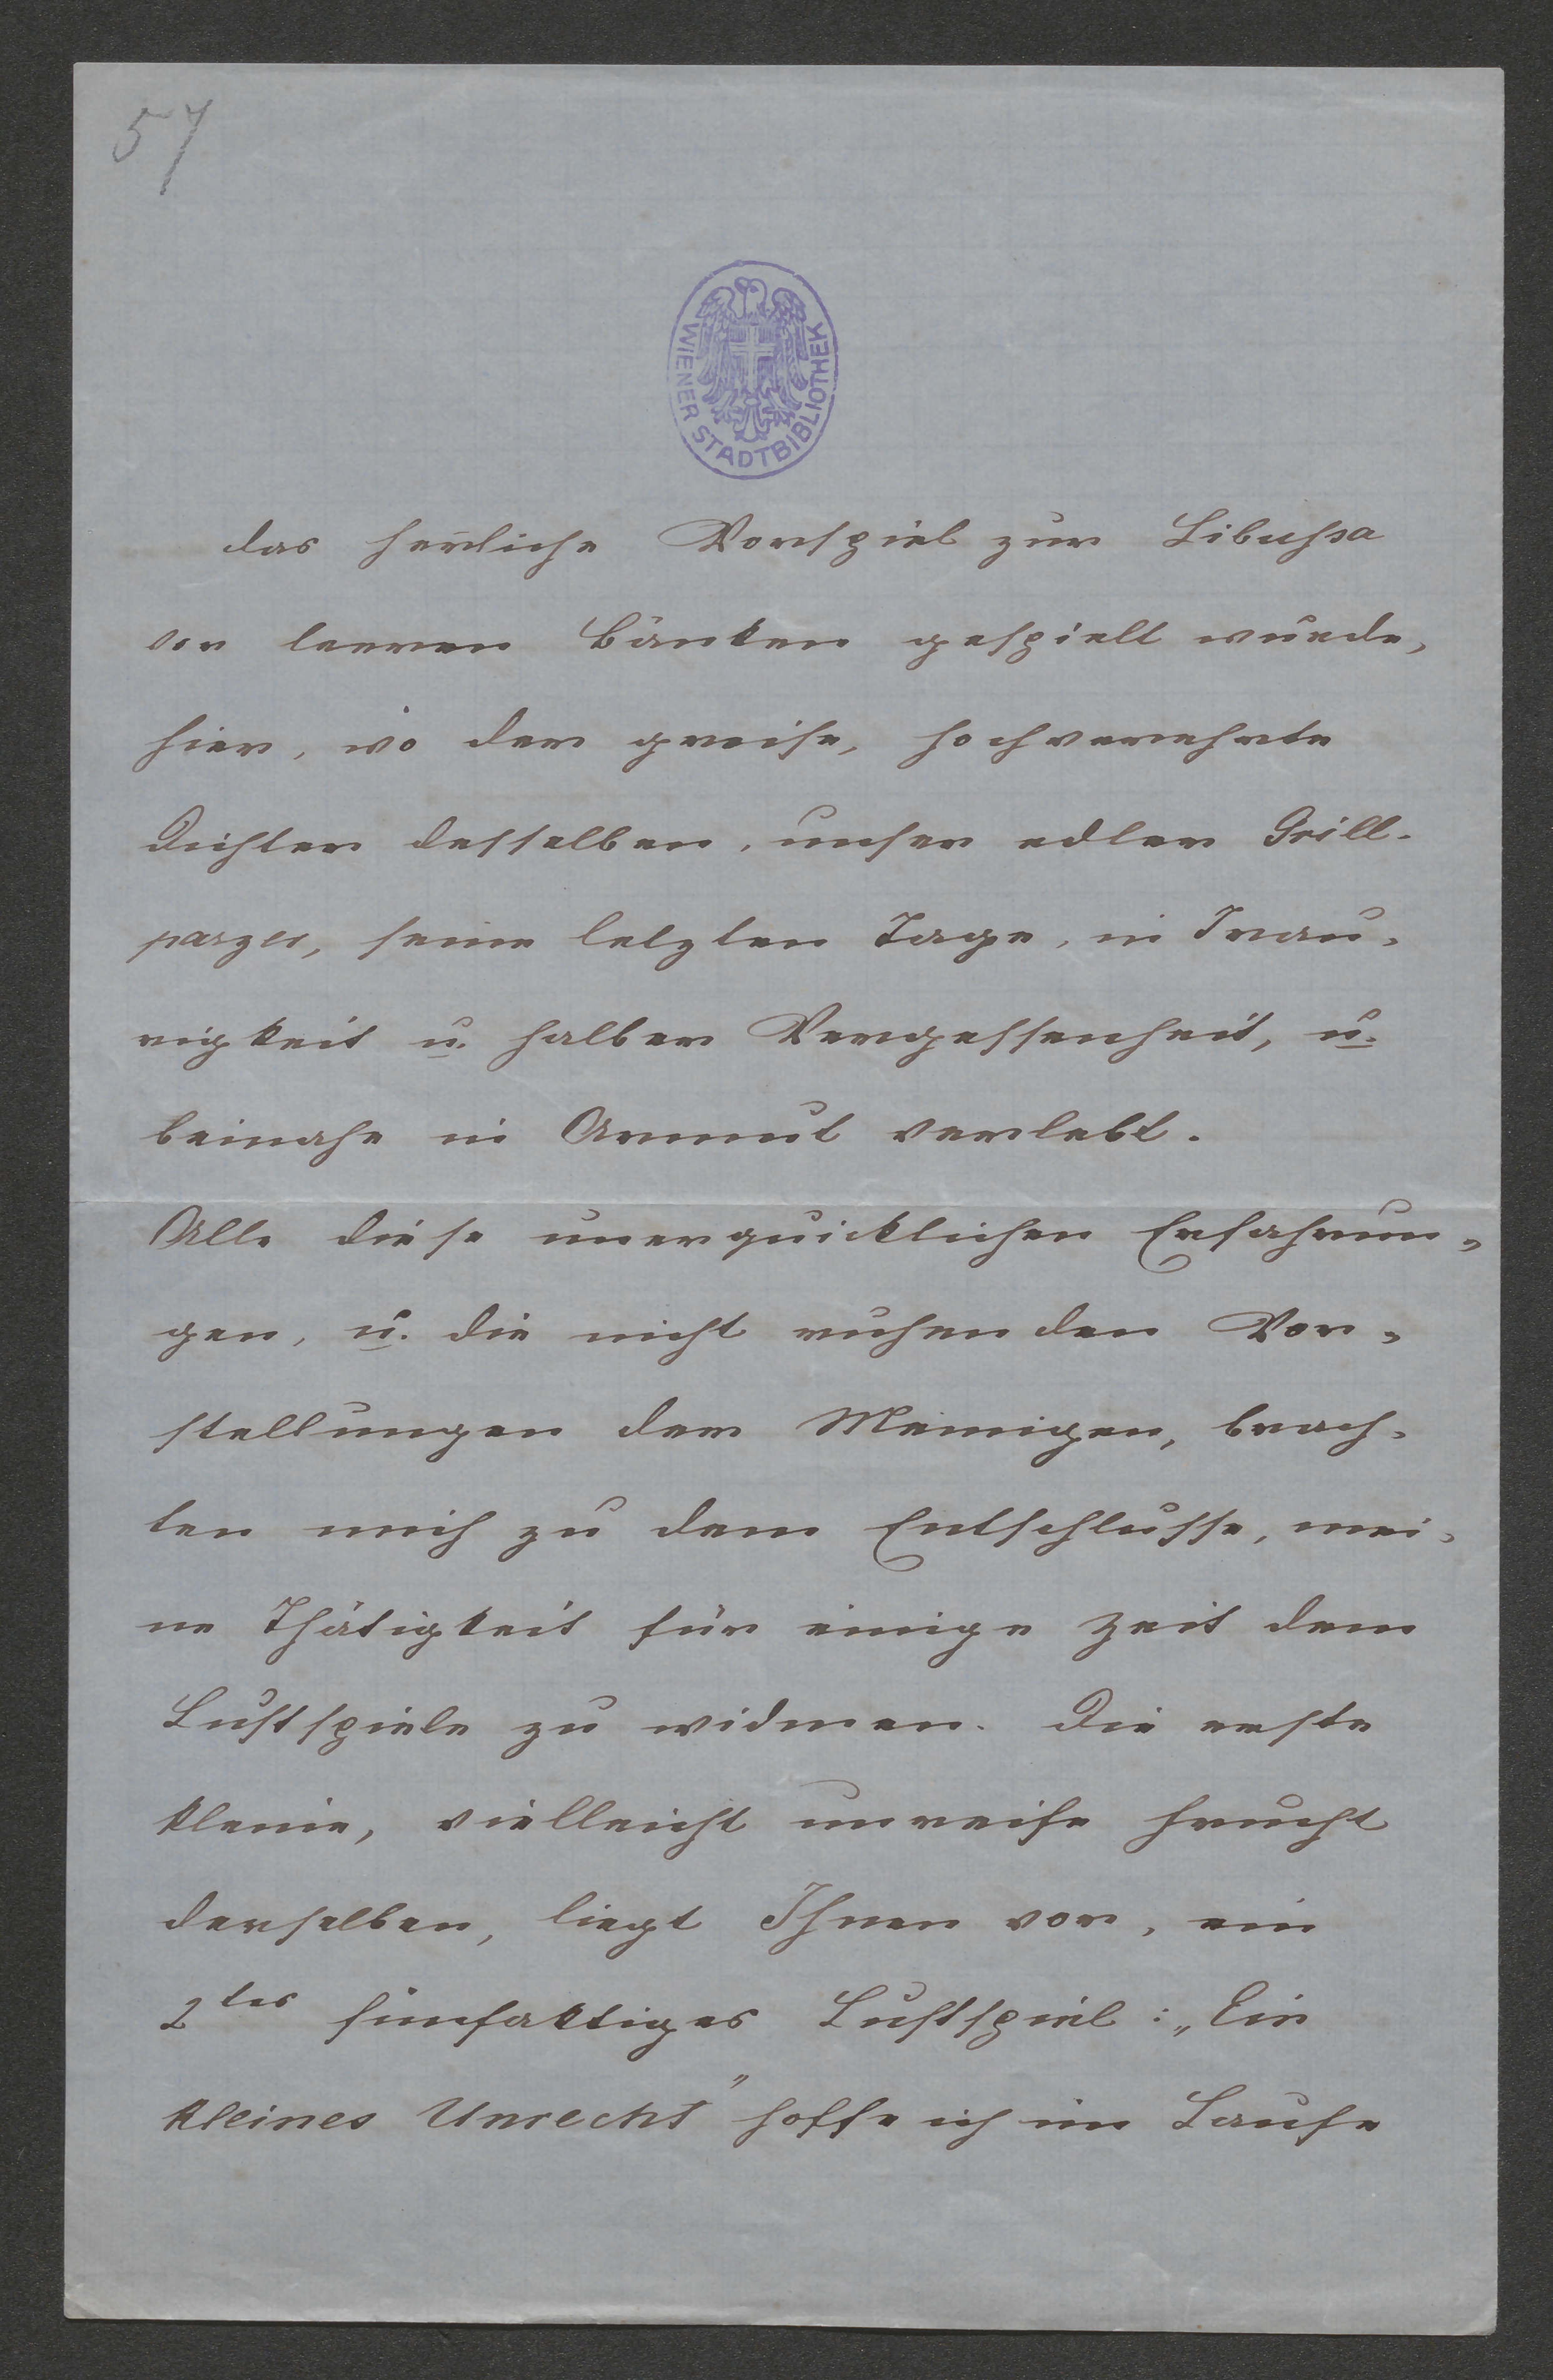 57
WIENER STADTBIBLIOTHEK
das herrliche Vorspiel zur Libussa
vor leeren Bänken gespielt wurde,
hier, wo der greise, hochverehrte
Dichter desselben, unser edler Grill-
parzer, seine letzten Tage, in Trau-
rigkeit u. halber Vergessenheit, u.
beinahe in Armut verlebt.
Alle diese unerquicklichen Erfahrun-
gen, u. die nicht ruhenden Vor-
stellungen der Meinigen, brach-
ten mich zu dem Entschlusse, mei-
ne Thätigkeit für einige Zeit dem
Lustspiele zu widmen. Die erste
kleine, vielleicht unreife Frucht
derselben, liegt Ihnen vor, ein
2tes fünfaktiges Lustspiel: „Ein
kleines Unrecht" hoffe ich im Laufe